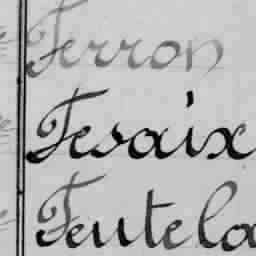 Ferron
Fesaix
Feutela